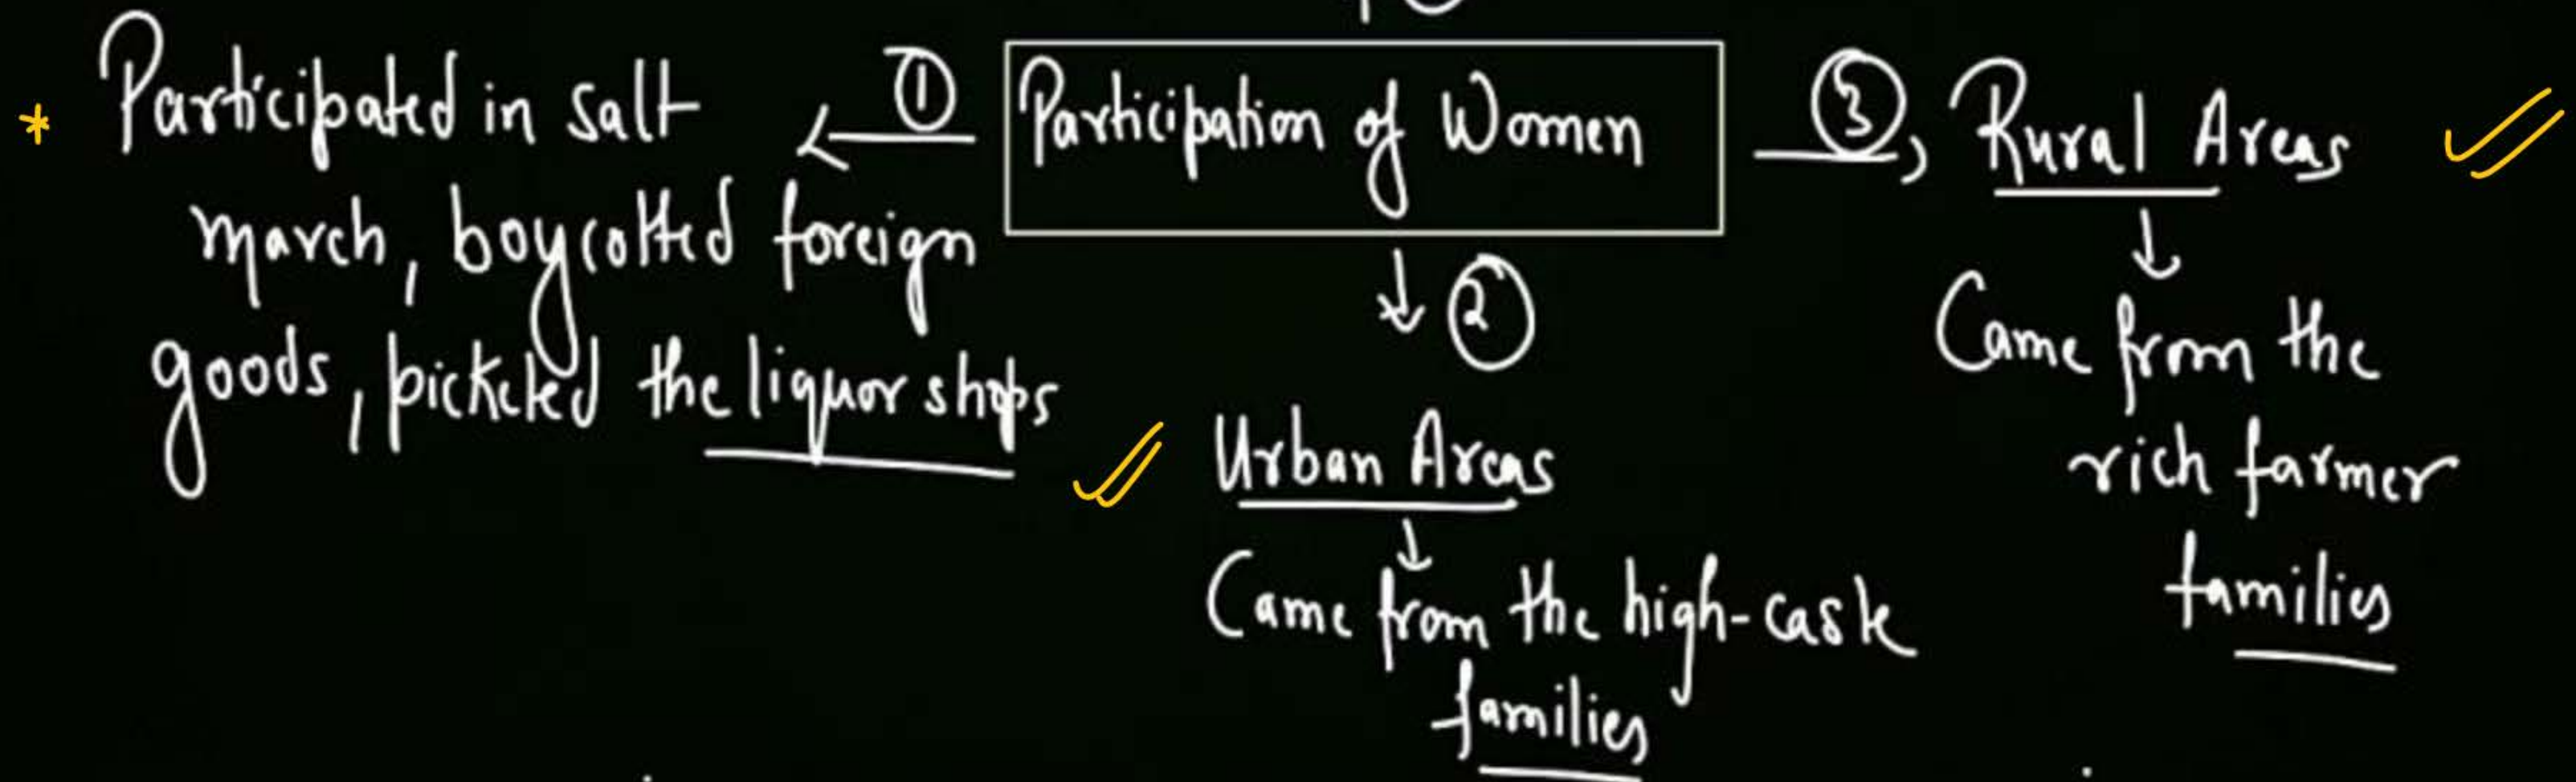 Participation of Women
①
* Participated in salt
march, boycotted foreign
goods, picketed the liquor shops
②
Urban Areas
Came from the high-caste
families
③
Rural Areas
Came from the
rich farmer
families